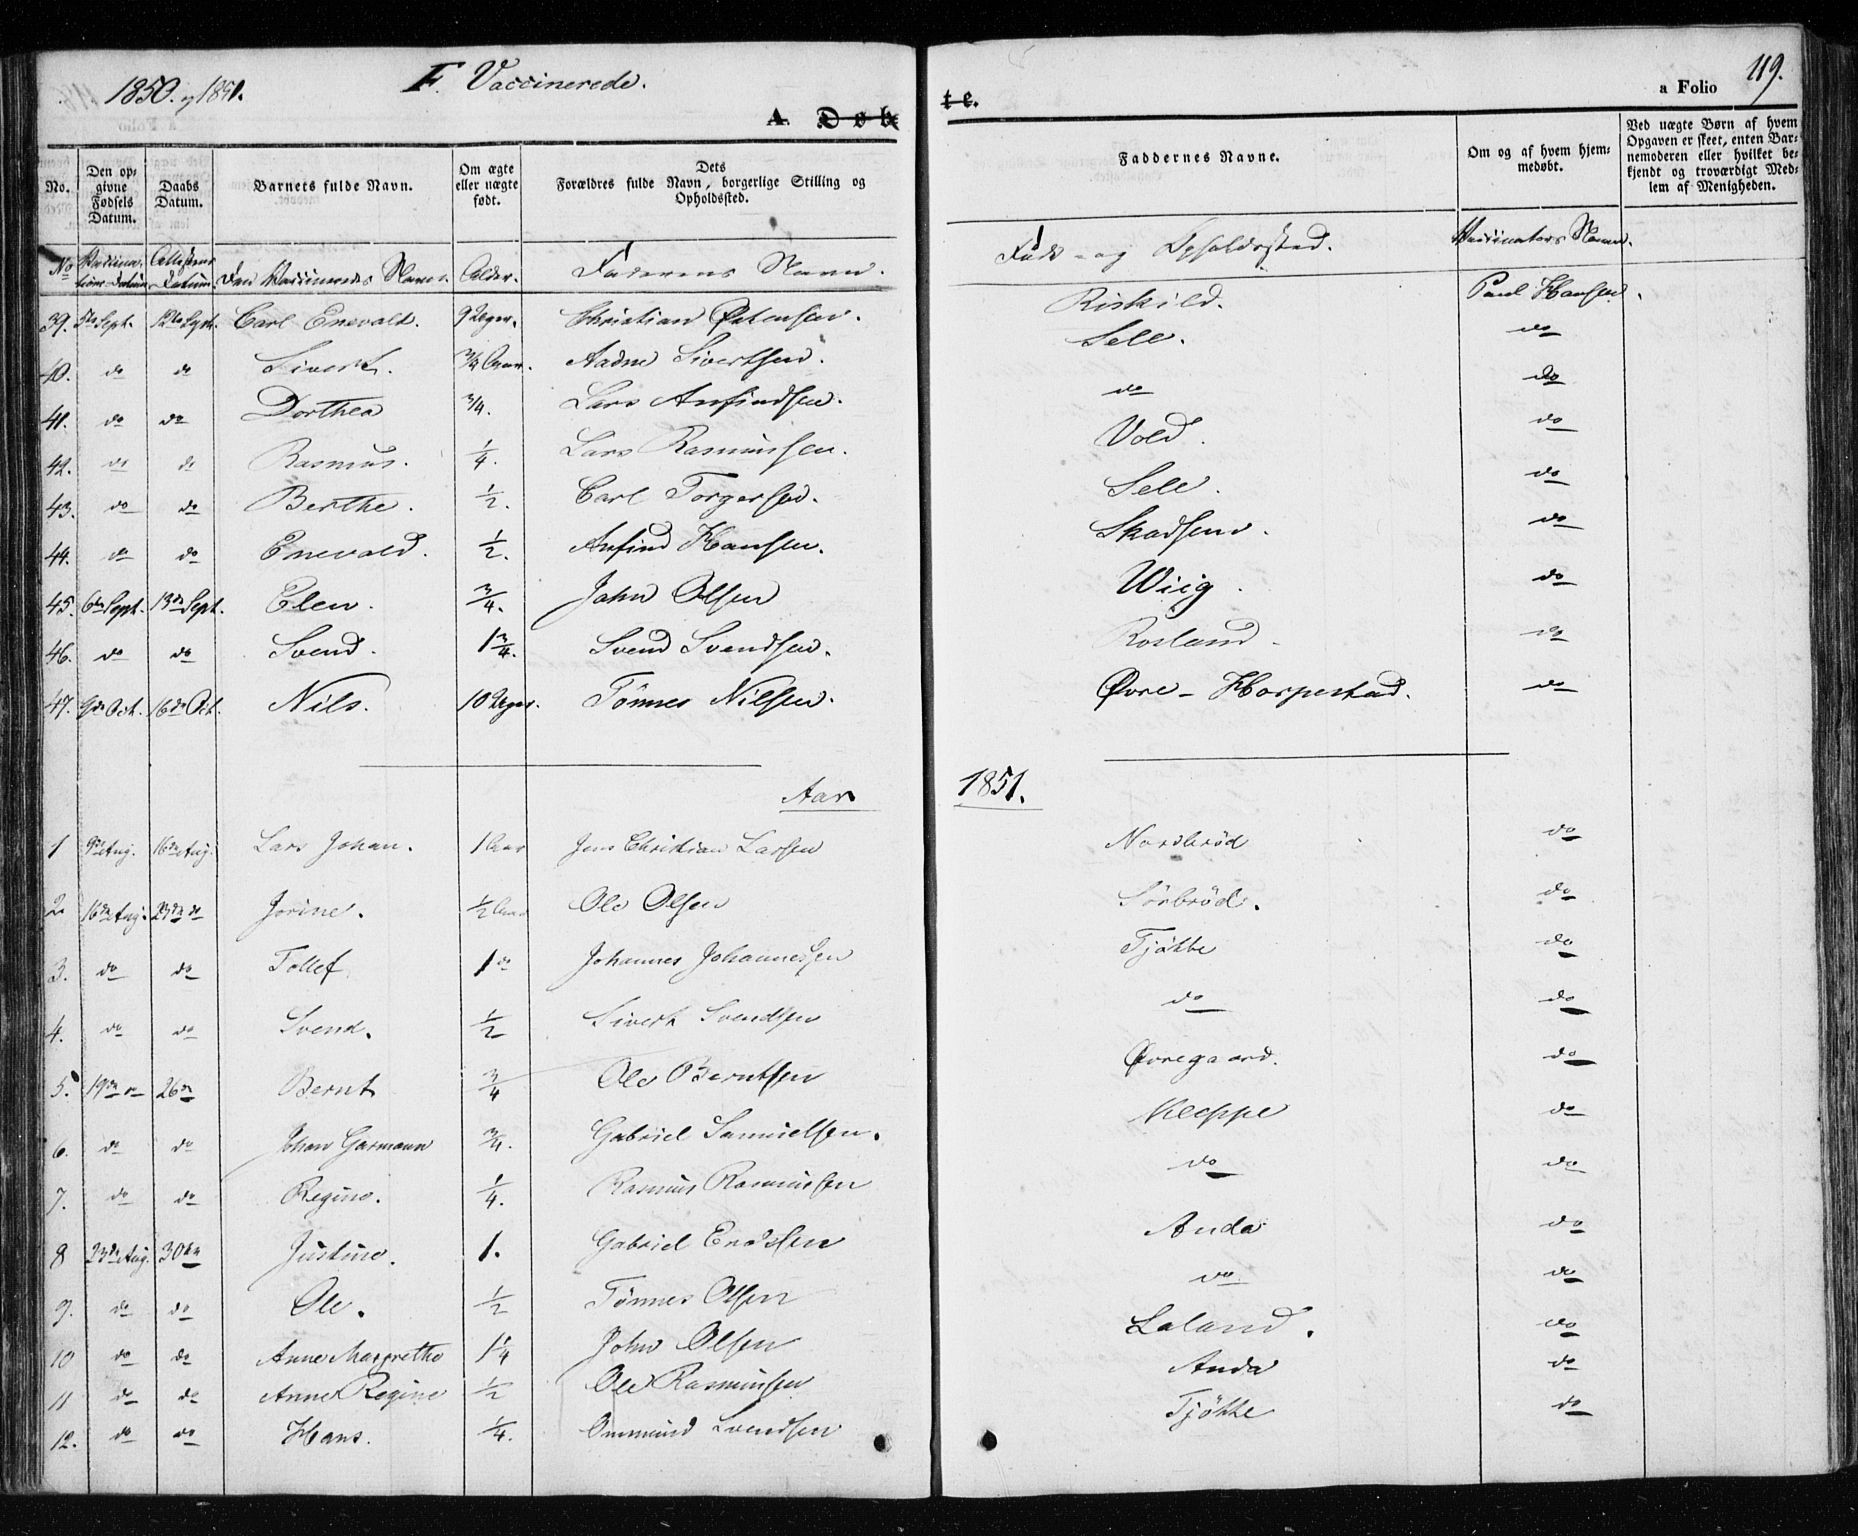 1850. og 1851. F. Vaccinerede. 119.
A Døbte. a Folio
No. Den opgivne Fødsels Datum. Daabs Datum. Barnets fulde Navn. Om ægte eller uægte født. Dets Forældres fulde Navn, borgerlige Stilling og Opholdssted. Faddernes Navne. Om og af hvem hjemmedøbt. Ved uægte Børn af hvem Opgaven er skeet, enten Barnemoderen eller hvilket bekjendt og troværdigt Medlem af Menigheden.
No Vaccinations Datum Attestens Datum. Den Vaccineredes Navn. Alder. Faderens Navn. Føde- og Opholdssted. Vaccinators Navn.
39. 5te Sept. 12te Sept. Carl Enevald. 9 Uger. Christian Østensen. Riskild. Paul Hansen.
40. do do Sivert. 3/4 Aar. Aadne Sivertsen. Sele. do
41. do do Dorthea 3/4. Lars Anfindsen. do do
42. do do Rasmus. 1/4. Lars Rasmussen. Vold. do
43. do do Berthe. 1/2. Carl Torgersen. Sele. do
44. do do Enevald. 1/2. Anfind Hansen. Skadsem. do
45. 6te Sept. 13de Sept. Elen. 3/4. John Olsen Wiig. do
46. do do Svend. 1 3/4. Svend Svendsen. Rosland do
47. 9de Oct. 16de Oct. Nils. 10 Uger. Tønnes Nilsen. Øvre-Horpestad. do
Aar 1851.
1 9de Aug. 16de Aug. Lars Johan. 1 Aar Jens Christian Larsen Nordbrød do
2 16de Aug. 23de do Jorine. 1/2 Aar Ole Olsen Sørbrød. do
3. do do Tollef 1 do Johannes Johannessen Tjøtte do
4. do do Svend. 1/2 Sivert Svendsen do do
5. 19de do 26de Bernt 3/4 Ole Berntsen Øvregaard. do
6. do do Johan Garmann 3/4. Gabriel Samuelsen. Kleppe do
7. do do Regine. 1/4. Rasmus Rasmussen do do
8 23de Aug. 30te Justine. 1. Gabriel Endsen Anda do
9. do do Ole. 1/2 Tønnes Olsen do do
10 do do Anne Margrethe 1 1/4 John Olsen Laland. do
11 do do Anne Regine 1/2 Ole Rasmussen Anda do
12. do do Hans. 1/4. Ommund Svendsen Tjøtte do